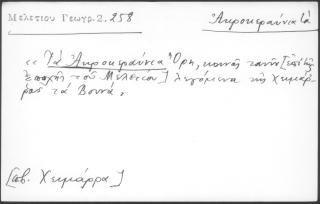 Μελετίου Γεωγρ. 2. 258
Ἀκροκεραύνια τά
«Τὰ Ἀκροκεραύνια Ὄρη, κοινῶς τανῦν [ἐπὶ τῆς
ἐποχῆς τοῦ Μελετίου] λεγόμενα τῆς Χειμάρ-
ρας τὰ Βουνά,
[πβ. Χειμάρρα]